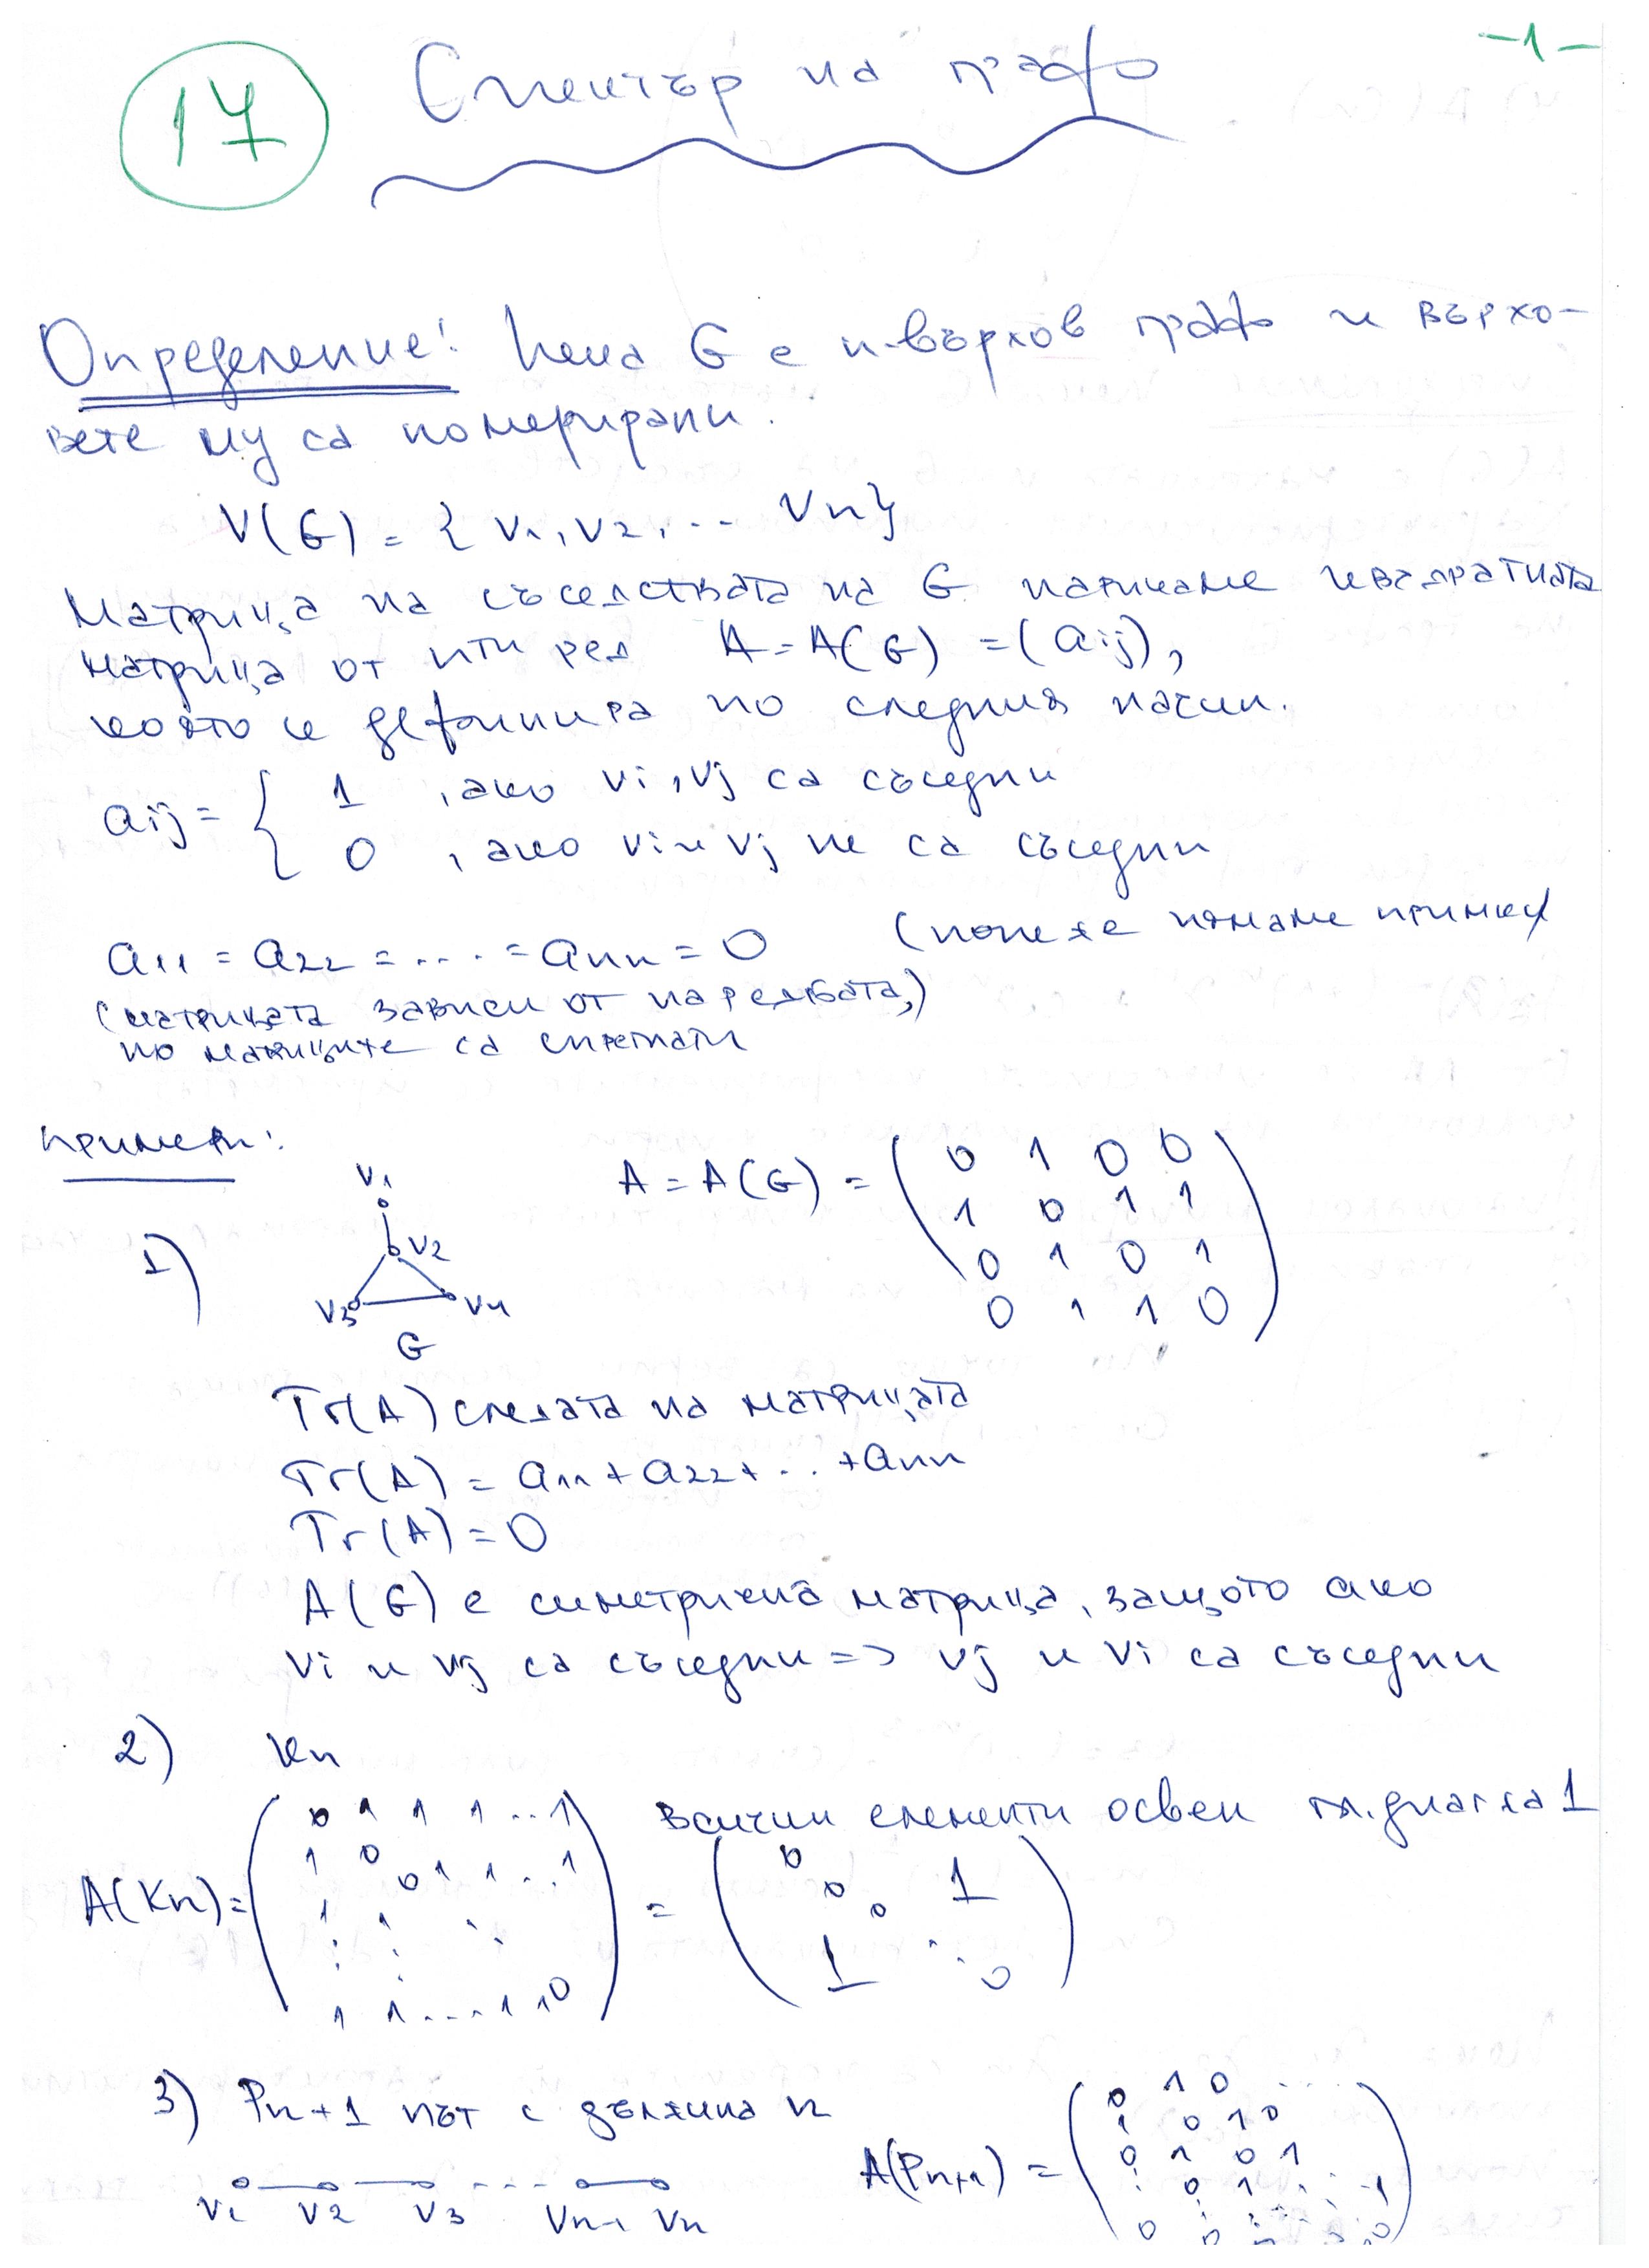 -1-
17
Спектър на граф
Определение: Нека G е n-върхов граф и върхо-
вете му са номерирани.
V(G) = { v1, v2, ... vn}
Матрица на съседствата на G наричаме квадратната
матрица от nти ред A = A(G) = (aij),
която се дефинира по следния начин.
aij = { 1 , ако vi, vj са съседни
0 , ако vi и vj не са съседни
a11 = a22 = .... = ann = 0 (понеже нямаме примки)
(матрицата зависи от наредбата,)
но матриците са
примери:
1)
v1
v2
v3 v4
G
A = A(G) = ( 0 1 0 0
1 0 1 1
0 1 0 1
0 1 1 0 )
Tr(A) следата на матрицата
Tr(A) = a11 + a22 + ... + ann
Tr(A) = 0
A(G) е симетрична матрица, защото ако
vi и vj са съседни => vj и vi са съседни
2) Kn
Всички елементи освен гл.диаг са 1
A(Kn) = ( 0 1 1 1 ..1
1 0
0 1 1 ...1
1 1
1 1....1 1 0 ) = ( 0
0 1
0
1 0 )
3) Pn+1 път с дължина n
v1 v2 v3 ... vn-1 vn
A(Pn+1) = ( 0 1 0 ....
1 0 1 0
0 1 0 1
0 1 1
0 0 0 )